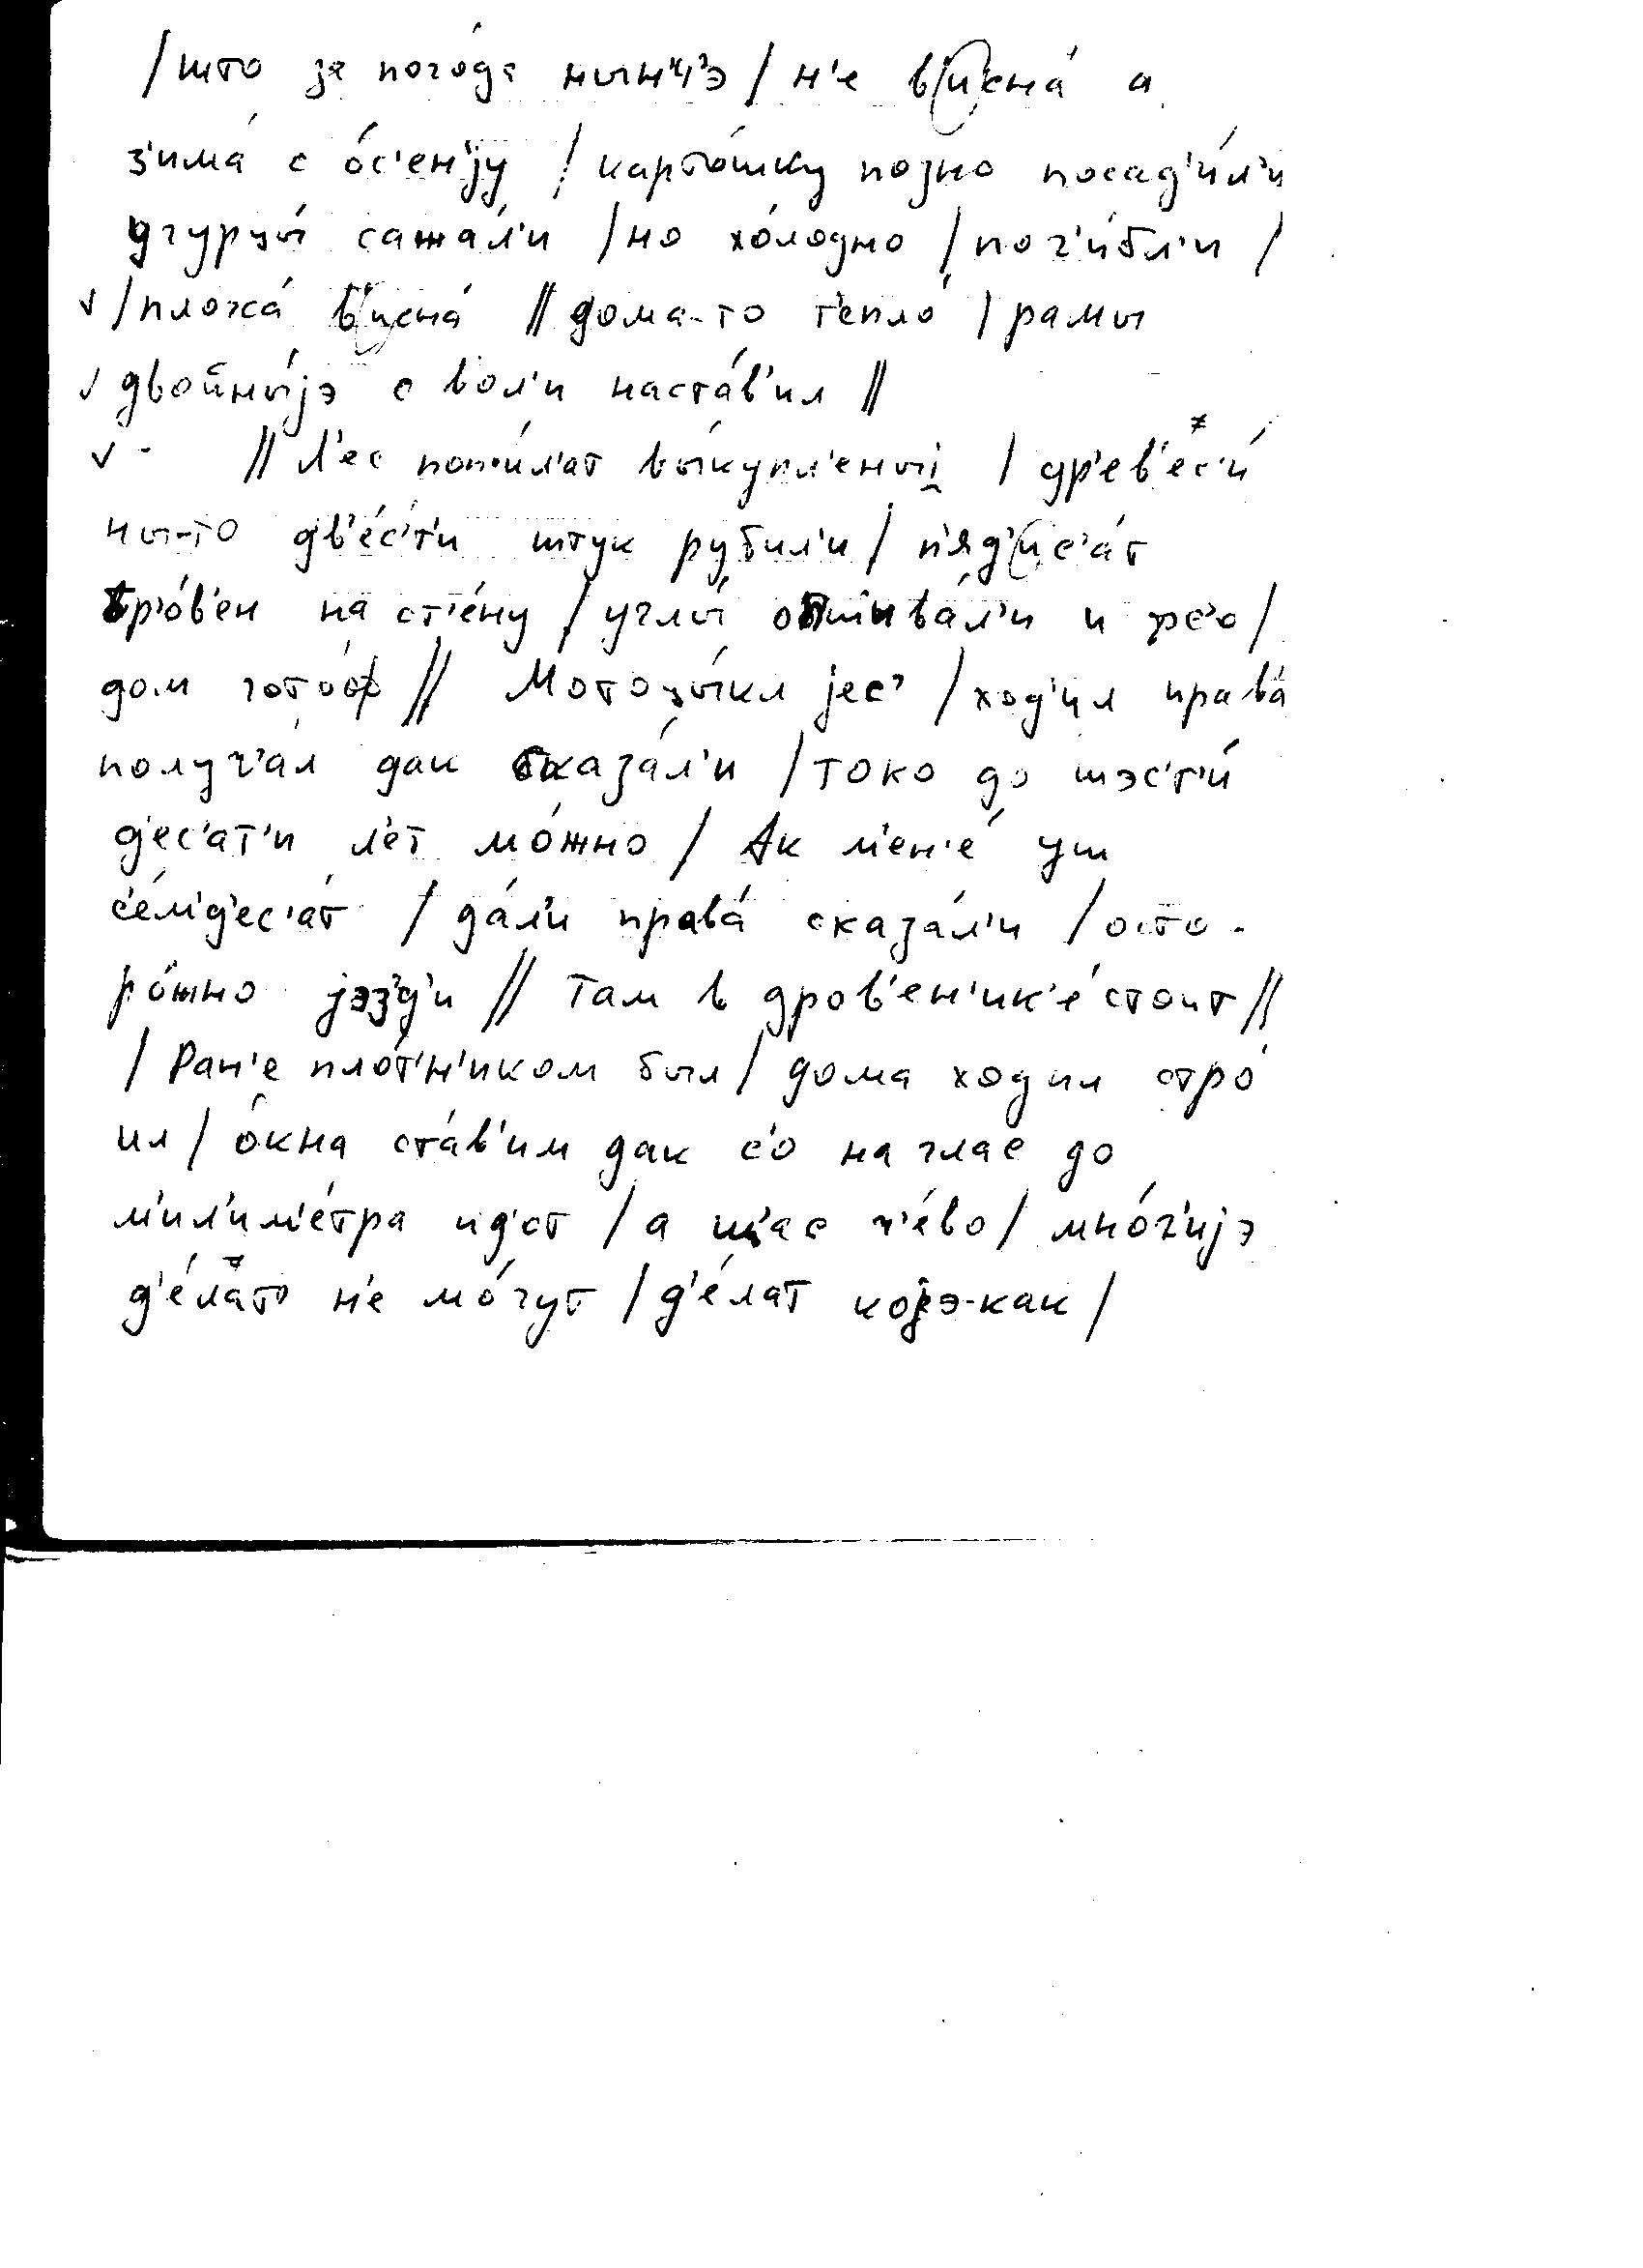 /што за пого́да нын'ч'э / н'е в'исна́ а
з'има́ с о́с'ен'jу / карто́шку позно посад'и́л'и
угурцы́ сажа́л'и / но хо́лодно / пог'и́бл'и /
✓ / плоха́ в'исна́ // дома-то т'епло́ / рамы
✓ двойны́jэ с вол'и наста́в'ил //
✓ - // Л'ес поп'и́л'ат вы́купл'еныi / др'ев'ес'и́
ны-то дв'е́с'т'и штук руб'ил'и / п'яд'ис'а́т
бр'о́в'ен на ст'е́ну / углы́ опшива́л'и и фс'о /
дом гото́ф // Мотоцы́кл jес' / ход'ил права́
получ'а́л дак сказа́л'и / токо до шэс'т'и́
д'ес'ат'и л'ет мо́жно / Ак м'ен'е́ уш
с'е́м'д'ес'ат / да́л'и права́ сказа́л'и / осто-
ро́жно jэз'д'и // Там в дров'ен'ик'е́ стоит //
/ Ран'е пло́т'н'иком был / дома ход ил стро́
ил / о́кна ста́в'им дак с'о на глас до
м'ил'им'е́тра ид'от / а щ'ас ч'е́во / мно́г'иjэ
д'е́лат' н'е мо́гут / д'е́лат коjэ-как /